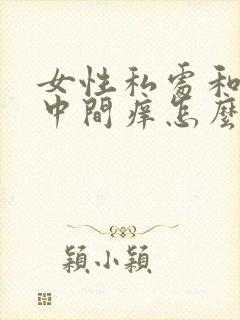 女性私處和
中間痒怎麼
穎小穎